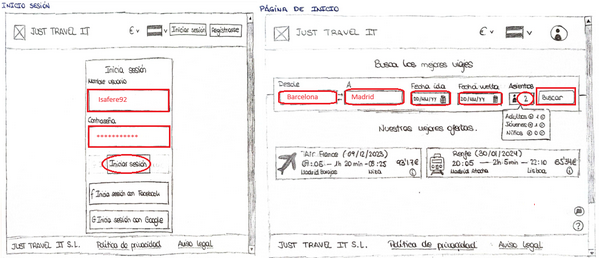 INICIO SESIÓN
JUST TRAVEL IT
€
Iniciar sesión
Registrarse
Inicia sesión
Nombre usuario
Isafere92
Contraseña
***********
Iniciar sesión
f Inicia sesión con Facebook
G Inicia sesión con Google
JUST TRAVEL IT S.L.
Política de privacidad
Aviso legal
PÁGINA DE INICIO
JUST TRAVEL IT
€
Busca los mejores viajes
Desde
A
Fecha ida
Fecha vuelta
Asientos
Barcelona
Madrid
DD/MM/YY
DD/MM/YY
2
Buscar
Adultos
Jóvenes
Niños
Nuestras mejores ofertas.
Air France (09/12/2023)
1h 20 min
Niza
Renfe (30/01/2024)
20:05 — 2h 5min — 22:10
Madrid Atocha
Lisboa
?
JUST TRAVEL IT S.L.
Política de privacidad
Aviso legal